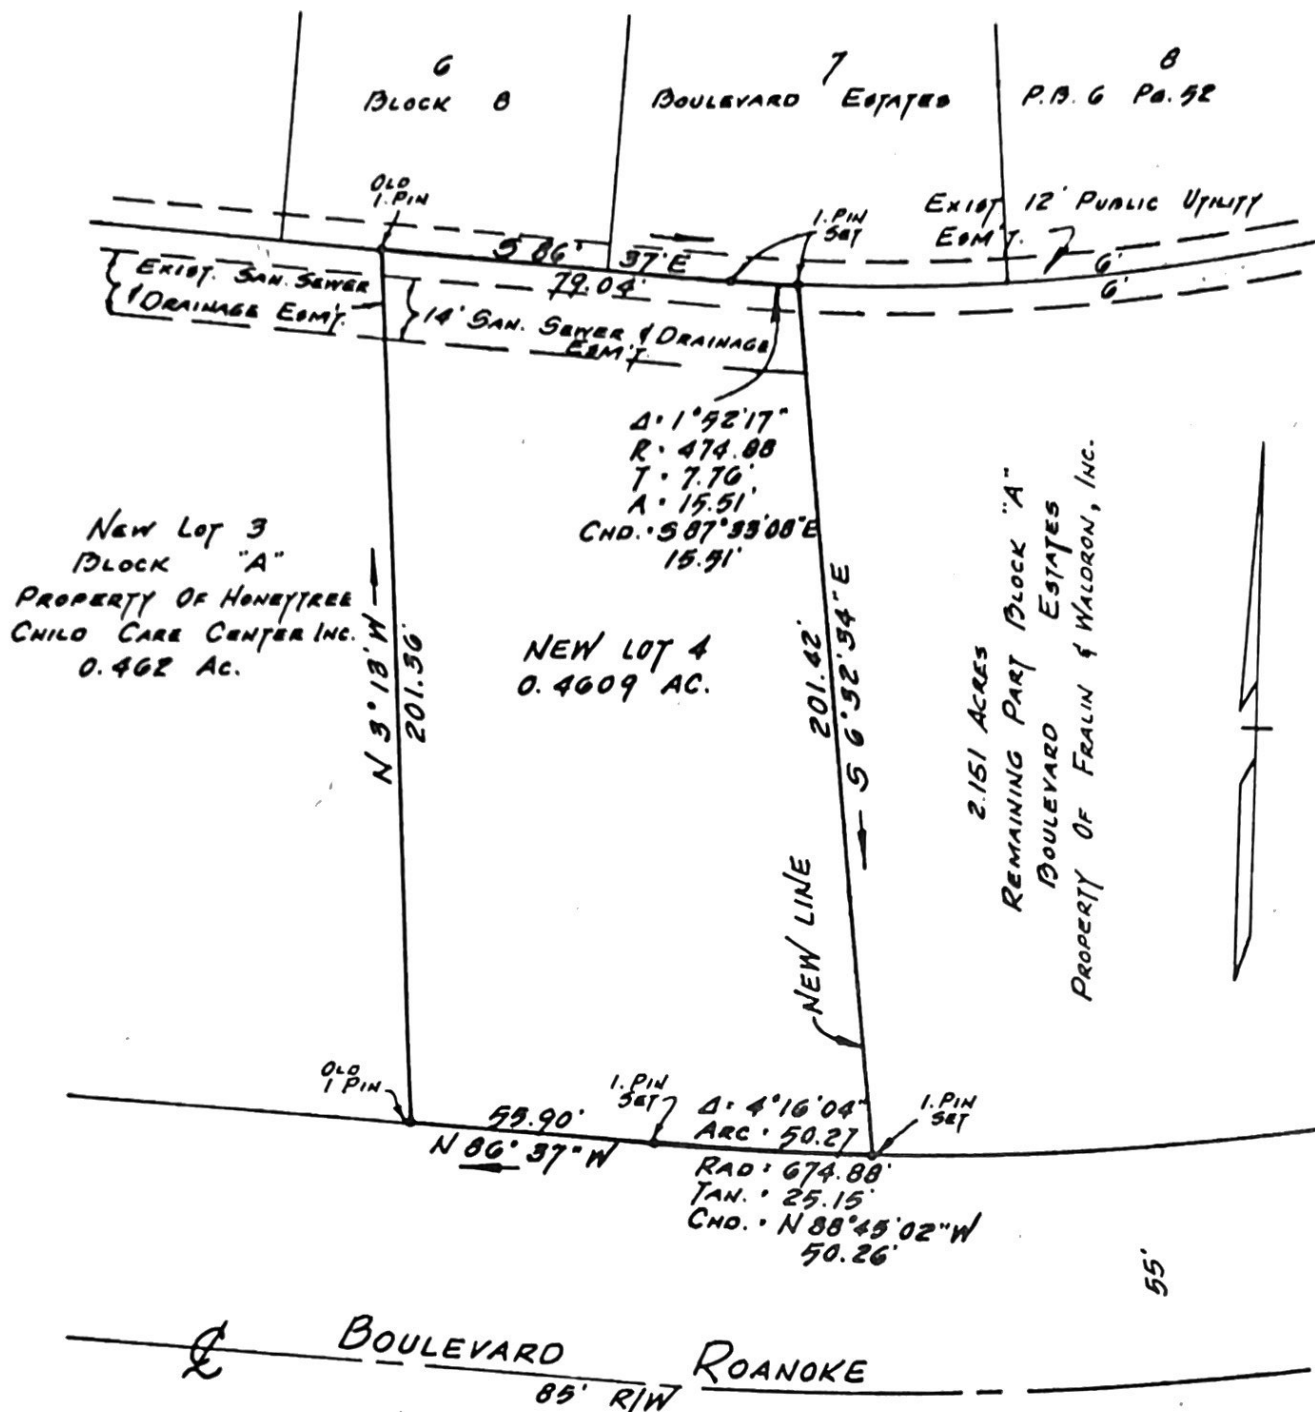 6
BLOCK B
7
BOULEVARD ESTATES
8
P.B. 6 PG. 52
OLD
I. PIN
I. PIN
SET
EXIST. 12' PUBLIC UTILITY
ESM'T.
6'
6'
S 86° 37' E
79.04'
EXIST. SAN. SEWER
& DRAINAGE ESM'T.
14' SAN. SEWER & DRAINAGE
ESM'T.
Δ = 1°52'17"
R = 474.88
T = 7.76'
A = 15.51'
CHD. = S 87°33'08" E
15.51'
NEW LOT 3
BLOCK "A"
PROPERTY OF HONEYTREE
CHILD CARE CENTER INC.
0.462 AC.
N 3° 13' W
201.36'
NEW LOT 4
0.4609 AC.
201.42'
S 6°32'54" E
NEW LINE
2.151 ACRES
REMAINING PART BLOCK "A"
BOULEVARD ESTATES
PROPERTY OF FRALIN & WALDRON, INC.
OLD
I PIN
55.90'
N 86° 37' W
I. PIN
SET
Δ = 4°16'04"
ARC = 50.27
RAD = 674.88'
TAN. = 25.15'
CHD. = N 88°45'02" W
50.26'
I. PIN
SET
55'
℄ BOULEVARD ROANOKE
85' R/W